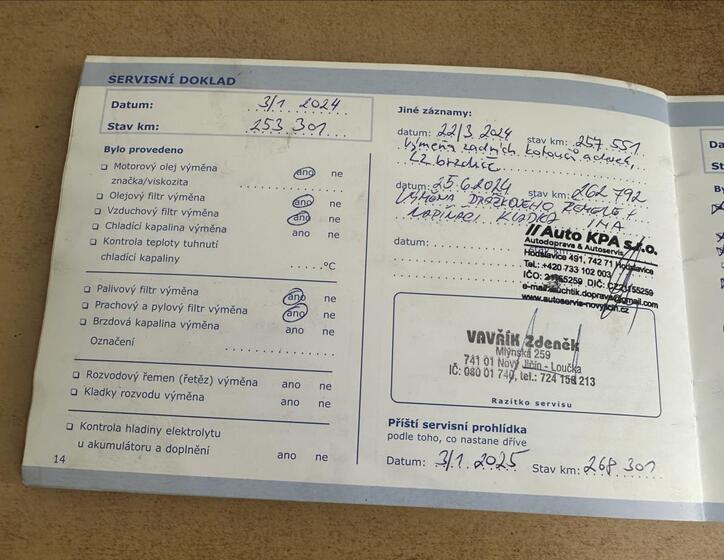 SERVISNÍ DOKLAD
Datum: 3/1 2024
Stav km: 253 301
Bylo provedeno
Motorový olej výměna ano ne
značka/viskozita
Olejový filtr výměna ano ne
Vzduchový filtr výměna ano ne
Chladící kapalina výměna ano ne
Kontrola teploty tuhnutí
chladící kapaliny °C
Palivový filtr výměna ano ne
Prachový a pylový filtr výměna ano ne
Brzdová kapalina výměna ano ne
Označení
Rozvodový řemen (řetěz) výměna ano ne
Kladky rozvodu výměna ano ne
Kontrola hladiny elektrolytu
u akumulátoru a doplnění ano ne
14
Jiné záznamy:
datum: 22/3 2024 stav km: 257 551
Výměna zadních kotoučů a desek,
LZ brzdič
datum: 25.6.2024 stav km: 262 792
VÝMĚNA DRÁŽKOVÉHO ŘEMENE +
NAPÍNACÍ KLADKA INA
datum:
// Auto KPA s.r.o.
Autodoprava & Autoservis
Hodslavice 491, 742 71 Hodslavice
Tel.: +420 733 102 003
IČO: 21155259 DIČ: CZ21155259
e-mail: suchtik.doprava@gmail.com
www.autoservis-novyjicin.cz
VAVŘÍK Zdeněk
Mlýnská 259
741 01 Nový Jičín - Loučka
IČ: 080 01 740, tel.: 724 156 213
Razítko servisu
Příští servisní prohlídka
podle toho, co nastane dříve
Datum: 3/1. 2025 Stav km: 268 301
Da
Sta
By